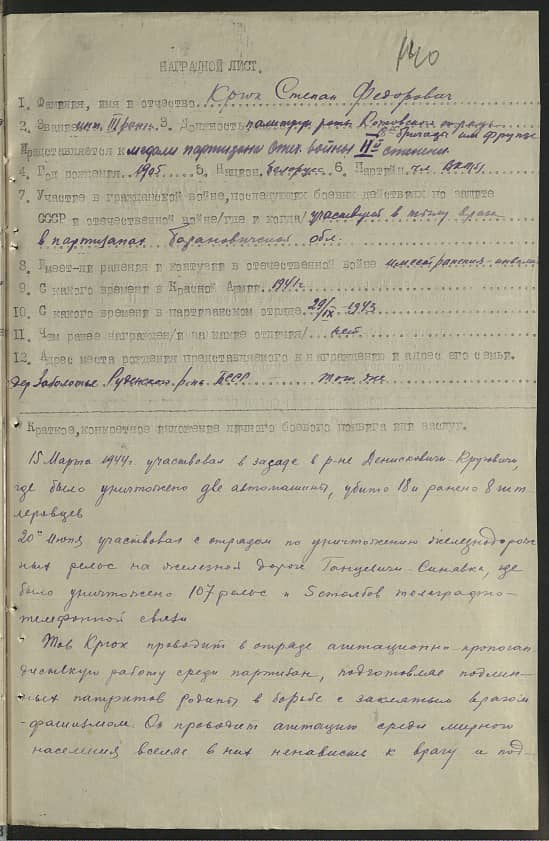 140
НАГРАДНОЙ ЛИСТ.
1. Фамилия, имя и отчество Крюк Степан Федорович
2. Звание инт. III ранг. 3. Должность политрук роты Котовского отряда
бригады им Фрунзе
Представляется к медали партизана Отеч. войны II й степени
4. Год рождения 1905. 5. Национ. белорусс 6. Партийн. чл. ВКП(б)
7. Участие в гражданской войне, последующих боевых действиях по защите
СССР и отечественной войне/где и когда/ участвует в тылу врага
в партизанах Барановичской обл.
8. Имеет-ли ранения и контузии в отечественной войне имеет ранения
9. С какого времени в Красной Армии 1941 г.
10. С какого времени в партизанском отряде 29/IX-1943
11. Чем ранее награжден/и за какие отличия/ нет
12. Адрес места рождения представляемого к награждению и адрес его семьи.
дер Заболотье Руденской р-на БССР там же
Краткое, конкретное изложение личного боевого подвига или заслуг.
15 Марта 1944 г. участвовал в засаде в р-не Денисковичи-Круговичи,
где было уничтожено две автомашины, убито 18 и ранено 8 гит-
леровцев
20 го Июня участвовал с отрядом по уничтожению железнодорож-
ных рельс на железной дороге Ганцевичи-Синявка, где
было уничтожено 107 рельс и 5 столбов телеграфно-
телефонной связи
Тов Крюк проводит в отряде агитационно-пропоган-
дистскую работу среди партизан, подготовляе подлин-
ных патриотов родины в борьбе с заклятым врагом
-фашизмом. Он проводит агитацию среди мирного
населения вселяе в них ненависть к врагу и под-